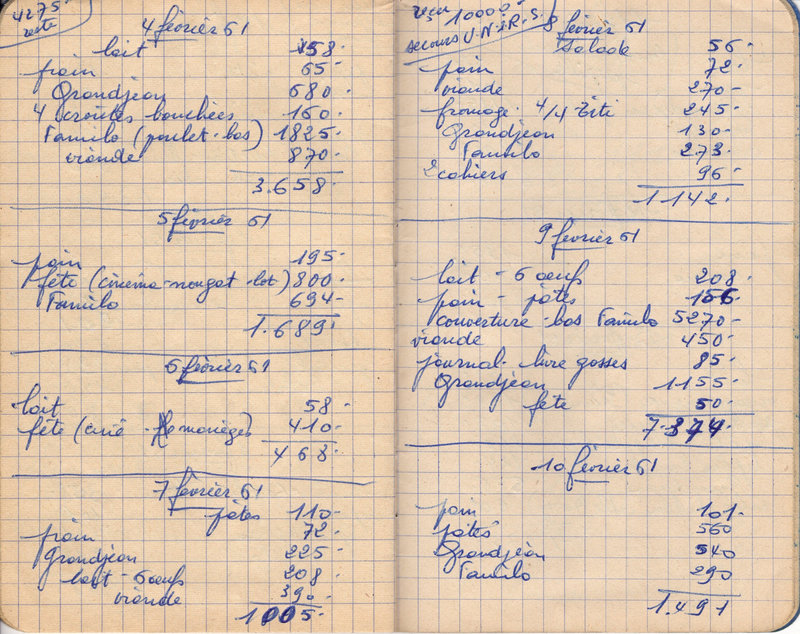 4275-
reste
4 février 61
lait 58-
pain 65-
Grandjean 680-
4 croûtes bouchées 160-
Familo (poulet-bas) 1825-
viande 870-
3.658-
5 février 61
pain 195-
fête (cinéma-nougat-lot) 800-
Familo 694-
1.689-
6 février 61
lait 58-
fête (ciné - manèges) 410-
468-
7 février 61
pâtes 110-
pain 72-
Grandjean 225-
lait - 6 œufs 208-
viande 390-
1005-
reçu 10000-
secours U.N.I.R.S.
8 février 61
salade 56-
pain 72-
viande 270-
fromage 4/4 245-
Grandjean 130-
Familo 273-
2 cahiers 96-
1142-
9 février 61
lait - 6 œufs 208-
pain - pâtes 156-
couverture-bas Familo 5270-
viande 450-
journal-livre gosses 85-
Grandjean 1155-
fête 50-
7.374-
10 février 61
pain 101-
pâtes 560
Grandjean 540
Familo 290
1.491